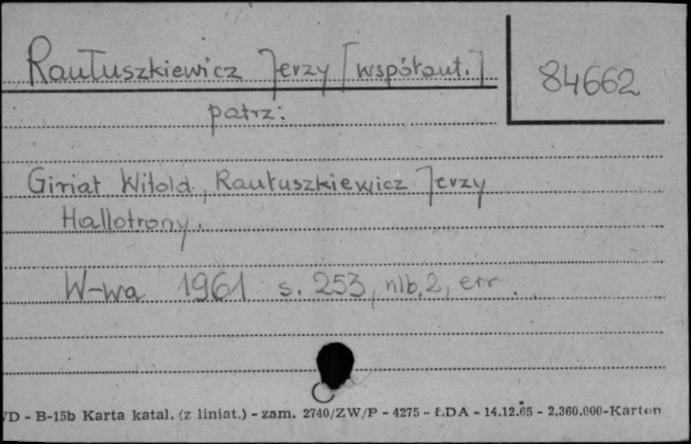 Rałuszkiewicz Jerzy [współaut.]
84662
patrz:
Giriat Witold, Rałuszkiewicz Jerzy
Hallotrony.
W-wa 1961 s. 253, nlb. 2, err.
/D - B-15b Karta katal. (z liniat.) - zam. 2740/ZW/P - 4275 - ŁDA - 14.12.65 - 2,360.000-Karton